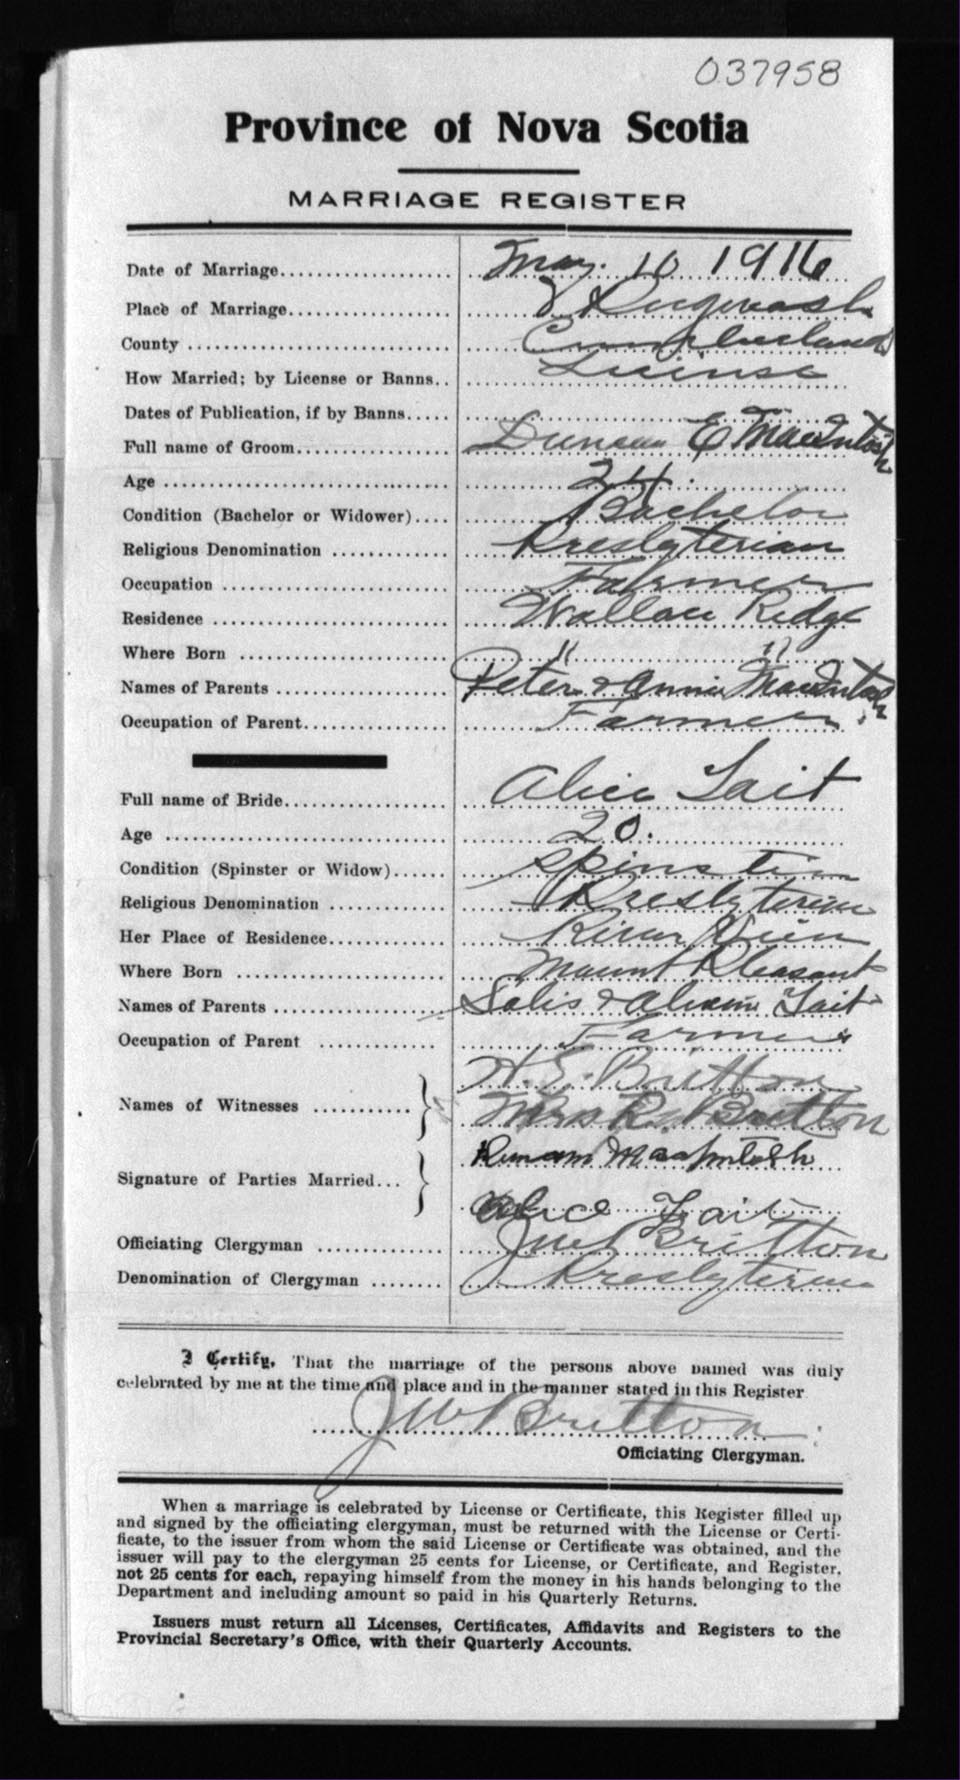 037958
Province of Nova Scotia
MARRIAGE REGISTER
Date of Marriage.................. May. 10 1916
Place of Marriage.................. Pugwash
County .................. Cumberland
How Married; by License or Banns.. License
Dates of Publication, if by Banns.....
Full name of Groom.................. Duncan E MacIntosh
Age .................. 24.
Condition (Bachelor or Widower).... Bachelor
Religious Denomination ............ Presbyterian
Occupation .................. Farmer
Residence .................. Wallace Ridge
Where Born .................. " "
Names of Parents .................. Peter & Annie MacIntosh
Occupation of Parent.................. Farmer
Full name of Bride.................. Alice Tait
Age .................. 20.
Condition (Spinster or Widow)...... Spinster
Religious Denomination ............ Presbyterian
Her Place of Residence............ River View
Where Born .................. Mount Pleasant
Names of Parents .................. & Tait
Occupation of Parent ............ Farmer
H. E. Britton
Names of Witnesses ........... Mrs R. Britton
MacIntosh
Signature of Parties Married...
Alice Tait
Officiating Clergyman ............ J W Britton
Denomination of Clergyman ........ Presbyterian
I Certify, That the marriage of the persons above named was duly
celebrated by me at the time and place and in the manner stated in this Register
J W Britton
Officiating Clergyman.
When a marriage is celebrated by License or Certificate, this Register filled up
and signed by the officiating clergyman, must be returned with the License or Certi-
ficate, to the issuer from whom the said License or Certificate was obtained, and the
issuer will pay to the clergyman 25 cents for License, or Certificate, and Register,
not 25 cents for each, repaying himself from the money in his hands belonging to the
Department and including amount so paid in his Quarterly Returns.
Issuers must return all Licenses, Certificates, Affidavits and Registers to the
Provincial Secretary's Office, with their Quarterly Accounts.